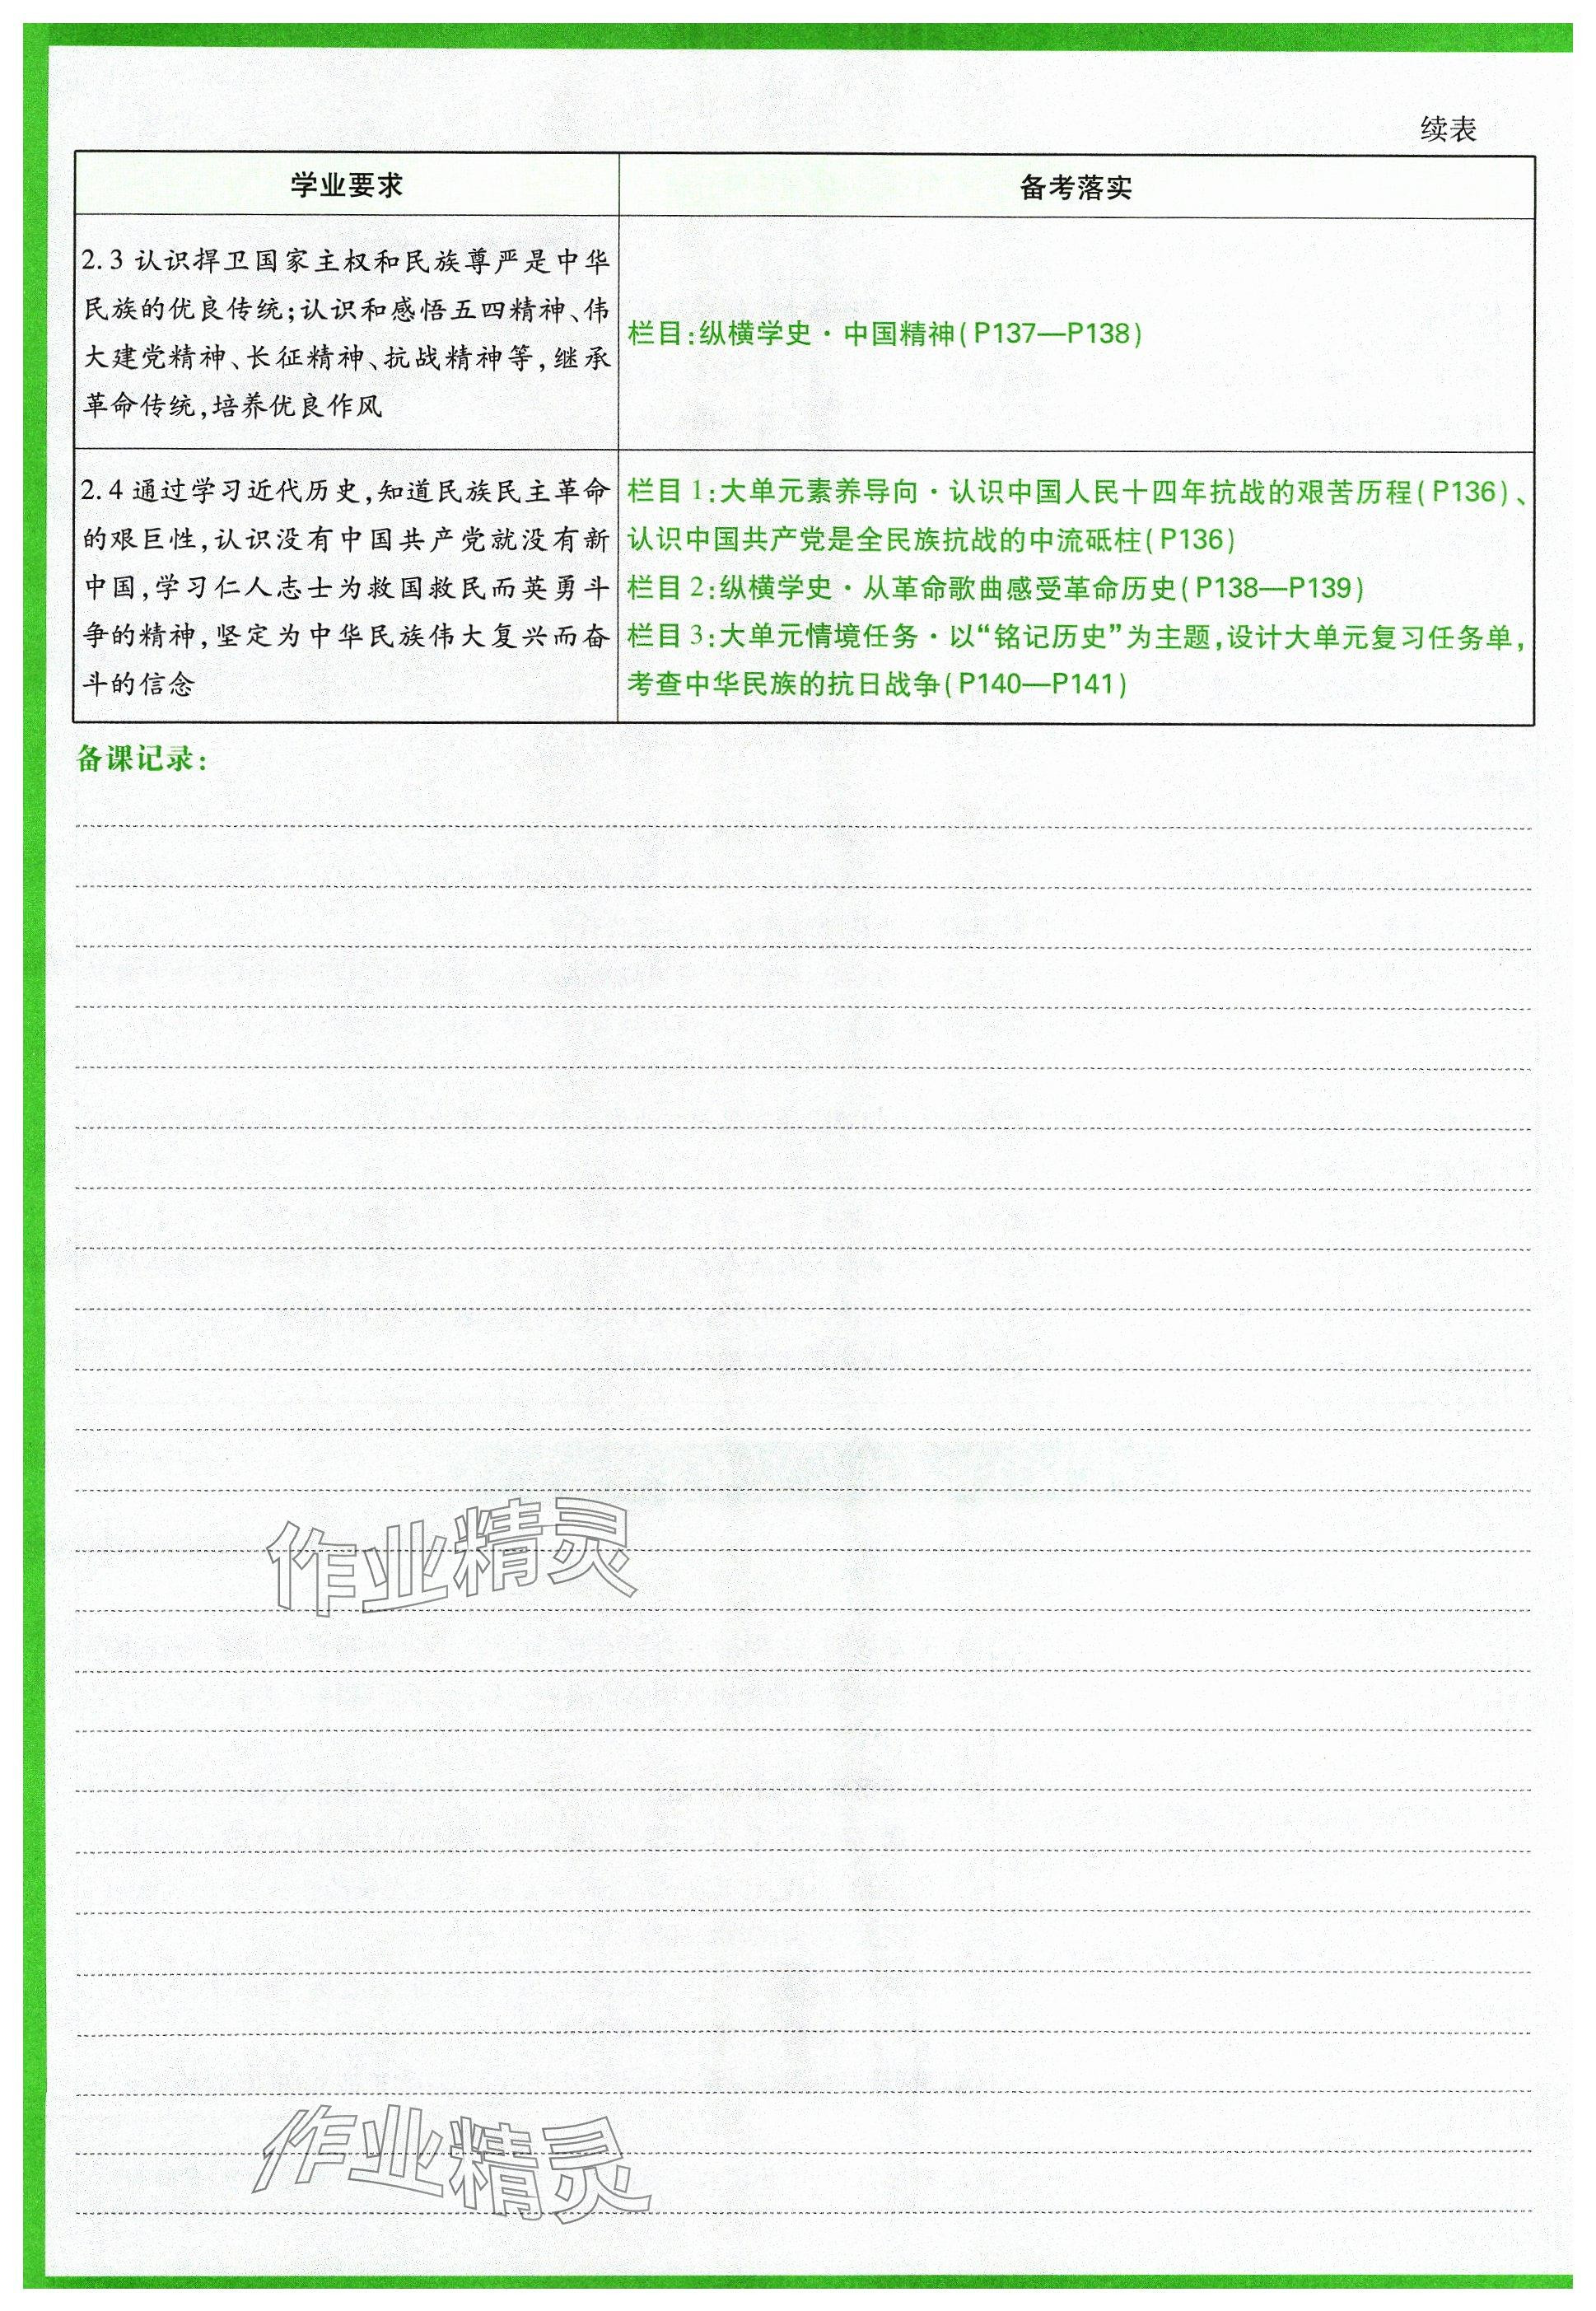 续表
学业要求
备考落实
2.3 认识捍卫国家主权和民族尊严是中华
民族的优良传统;认识和感悟五四精神、伟
大建党精神、长征精神、抗战精神等,继承
革命传统,培养优良作风
栏目:纵横学史·中国精神(P137—P138)
2.4 通过学习近代历史,知道民族民主革命
的艰巨性,认识没有中国共产党就没有新
中国,学习仁人志士为救国救民而英勇斗
争的精神,坚定为中华民族伟大复兴而奋
斗的信念
栏目 1:大单元素养导向·认识中国人民十四年抗战的艰苦历程(P136)、
认识中国共产党是全民族抗战的中流砥柱(P136)
栏目 2:纵横学史·从革命歌曲感受革命历史(P138—P139)
栏目 3:大单元情境任务·以“铭记历史”为主题,设计大单元复习任务单,
考查中华民族的抗日战争(P140—P141)
备课记录:
作业精灵
作业精灵